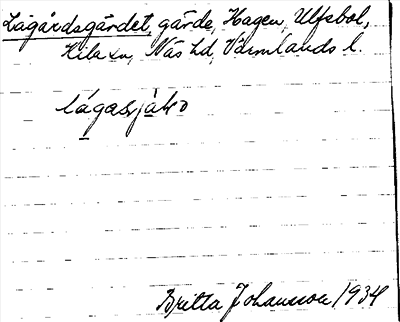 Lagårdsgärdet, gärde, Hagen, Ulfsbol,
Kila sn, Näs hd, Värmlands l.
Britta Johansson 1934